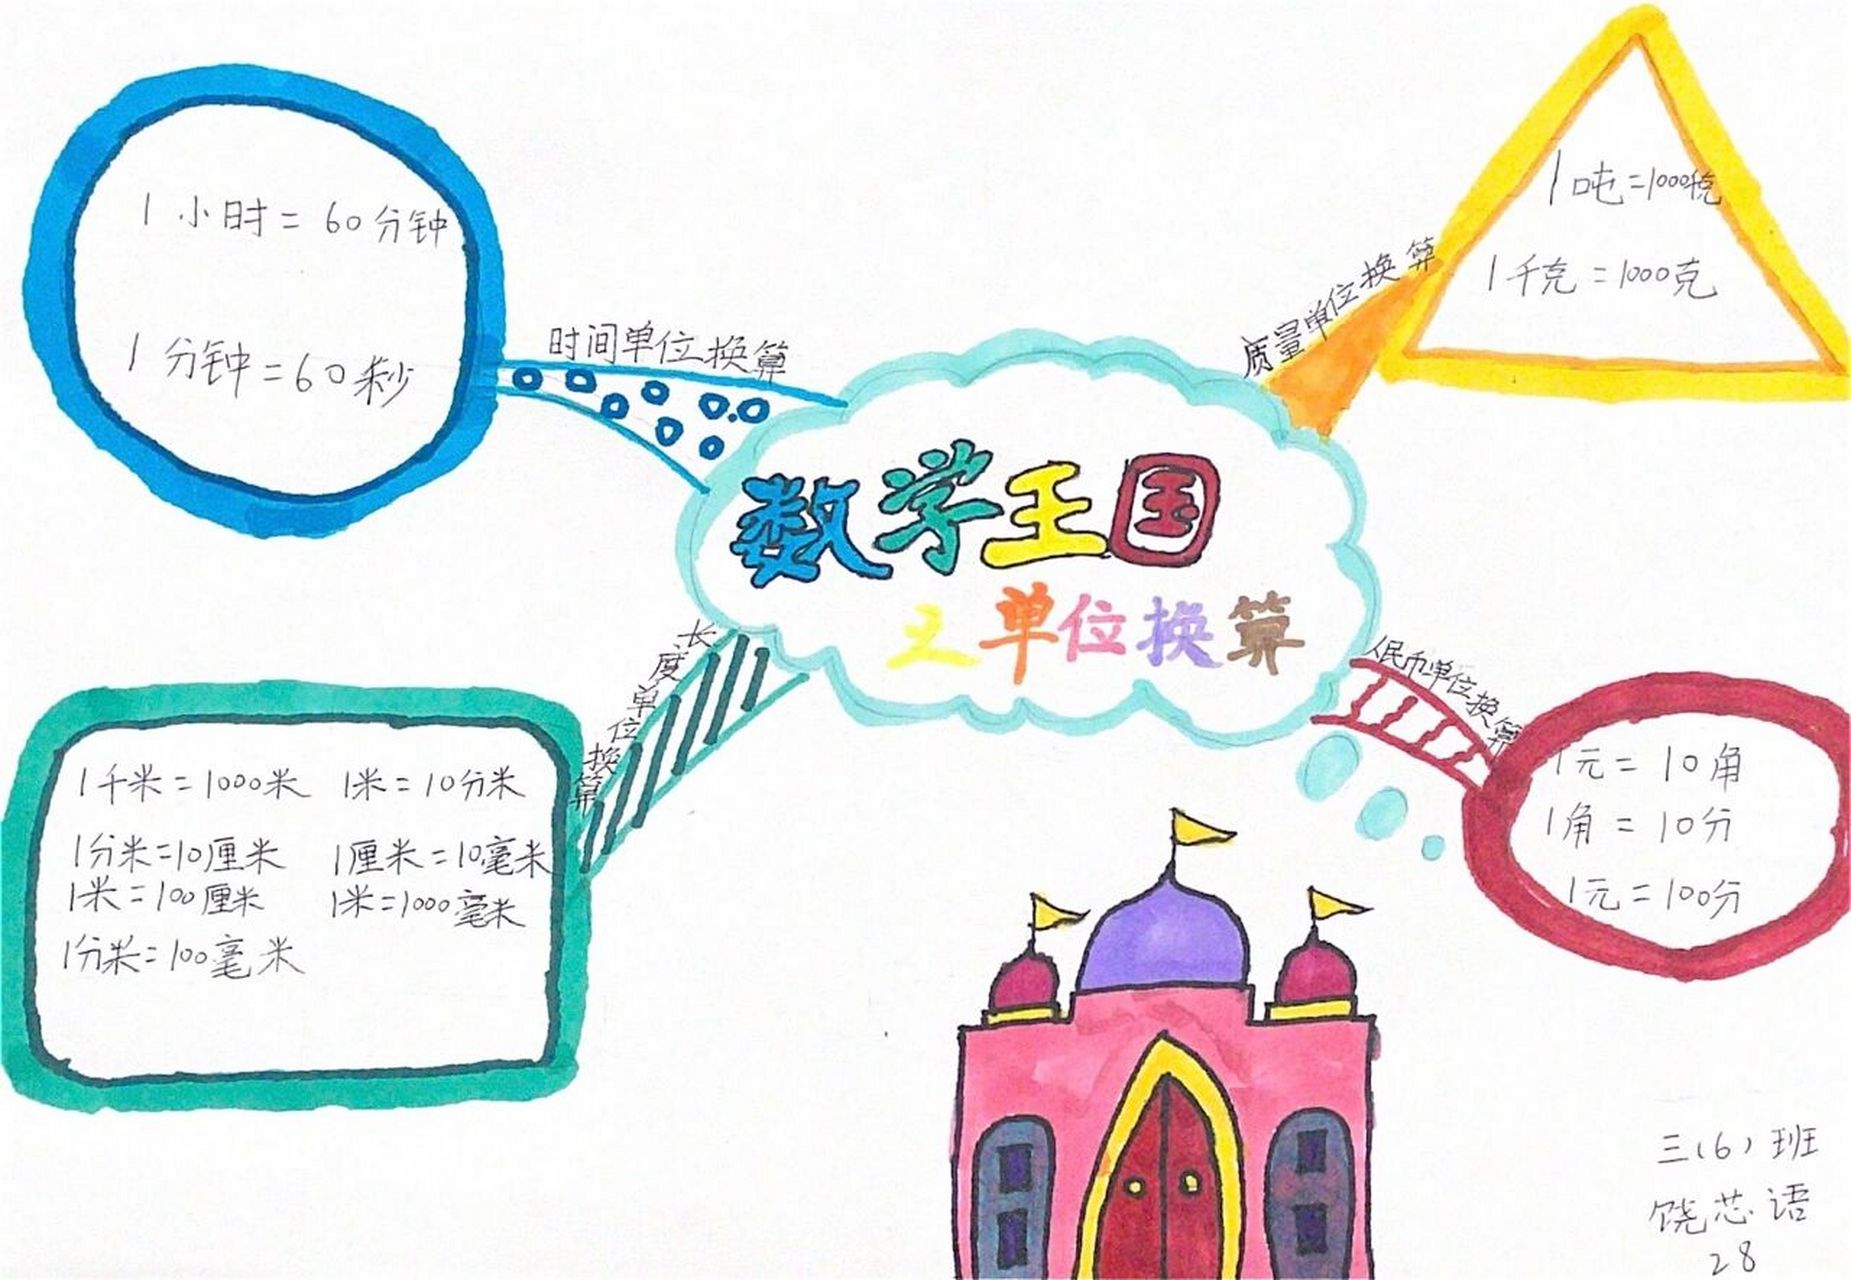 1小时=60分钟
1分钟=60秒
时间单位换算
质量单位换算
1吨=1000千克
1千克=1000克
数学王国
之单位换算
长度单位换算
1千米=1000米 1米=10分米
1分米=10厘米 1厘米=10毫米
1米=100厘米 1米=1000毫米
1分米=100毫米
人民币单位换算
1元=10角
1角=10分
1元=100分
三(6)班
饶芯语
28